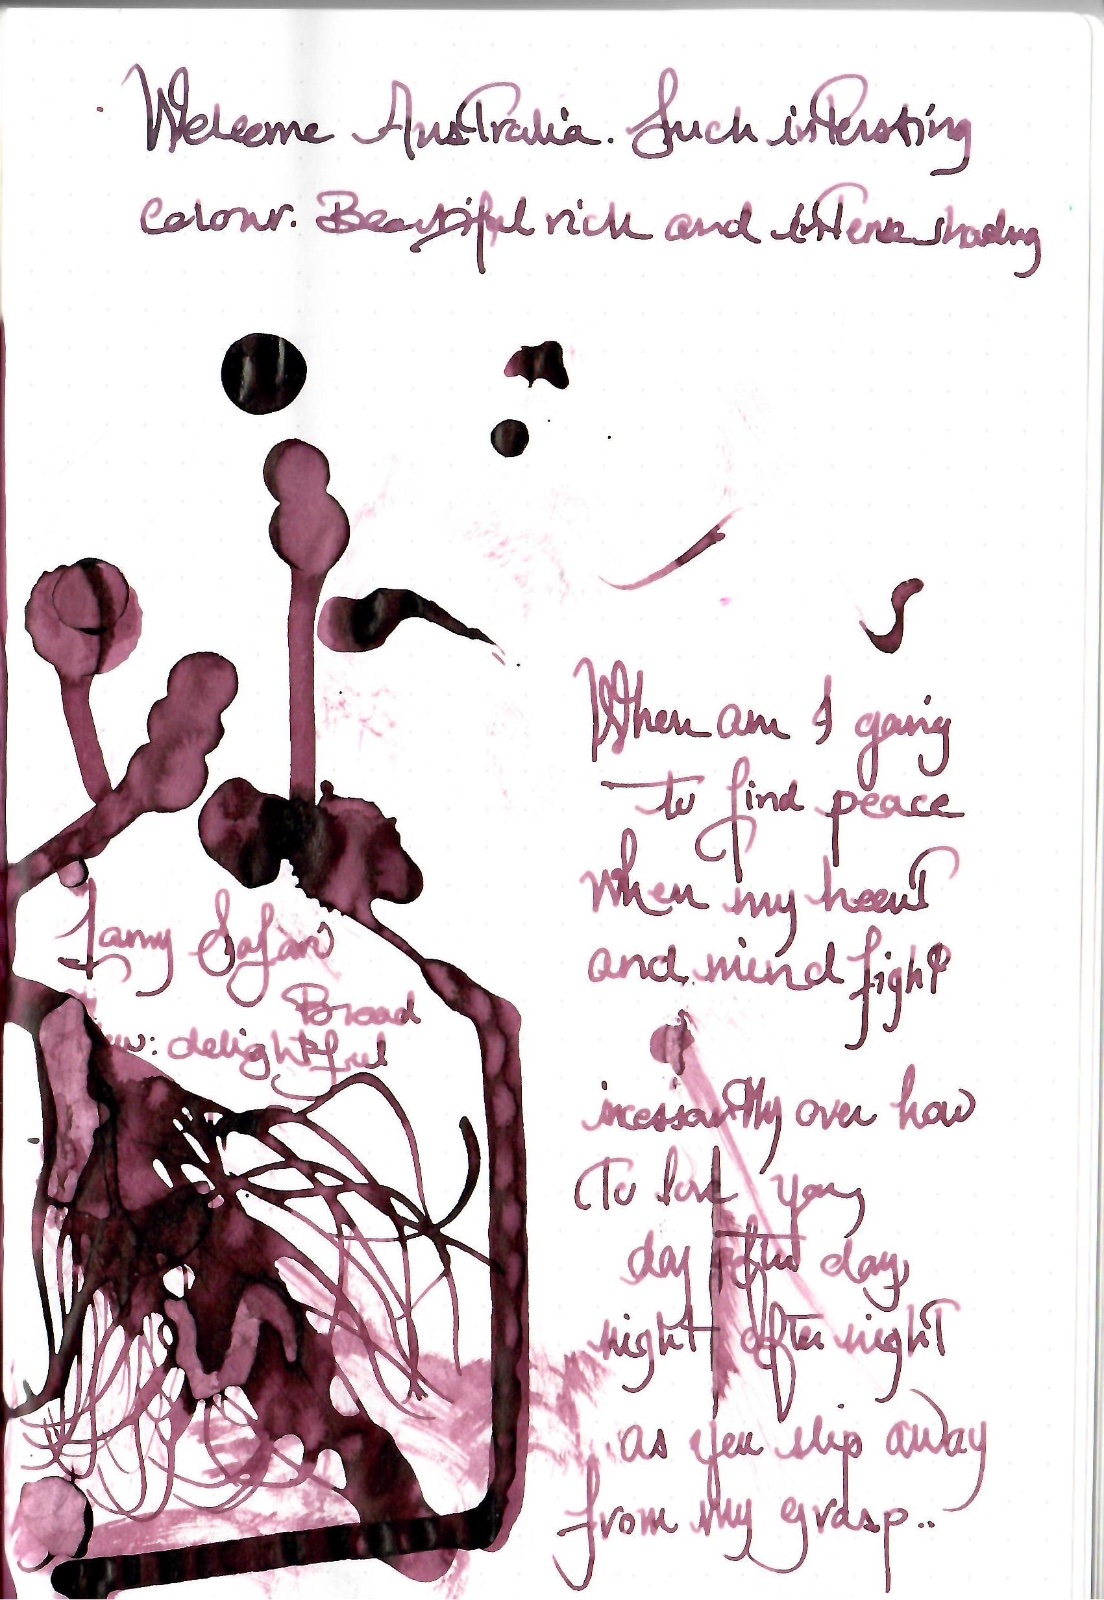 Welcome Australia. Such intersting
colour. Beautiful rich and intense shading
When am I going
to find peace
when my heart
and mind fight
incessantly over how
to love you
day after day,
night after night
as you slip away
from my grasp..
Lamy Safari
Broad
delightful